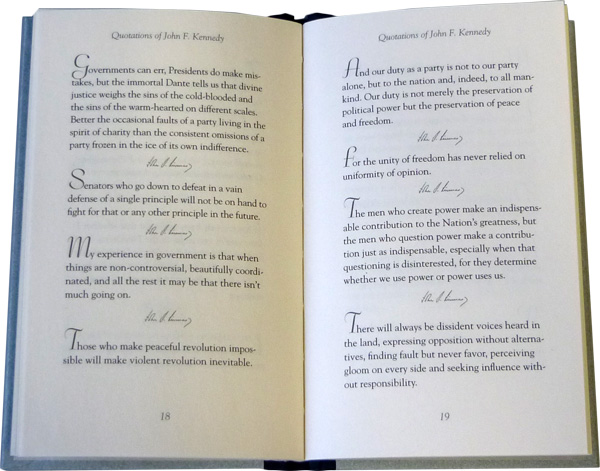 Quotations of John F. Kennedy
Governments can err, Presidents do make mis-
takes, but the immortal Dante tells us that divine
justice weighs the sins of the cold-blooded and
the sins of the warm-hearted on different scales.
Better the occasional faults of a party living in the
spirit of charity than the consistent omissions of a
party frozen in the ice of its own indifference.
Senators who go down to defeat in a vain
defense of a single principle will not be on hand to
fight for that or any other principle in the future.
My experience in government is that when
things are non-controversial, beautifully coordi-
nated, and all the rest it may be that there isn't
much going on.
Those who make peaceful revolution impos-
sible will make violent revolution inevitable.
18
Quotations of John F. Kennedy
And our duty as a party is not to our party
alone, but to the nation and, indeed, to all man-
kind. Our duty is not merely the preservation of
political power but the preservation of peace
and freedom.
For the unity of freedom has never relied on
uniformity of opinion.
The men who create power make an indispens-
able contribution to the Nation's greatness, but
the men who question power make a contribu-
tion just as indispensable, especially when that
questioning is disinterested, for they determine
whether we use power or power uses us.
There will always be dissident voices heard in
the land, expressing opposition without alterna-
tives, finding fault but never favor, perceiving
gloom on every side and seeking influence with-
out responsibility.
19